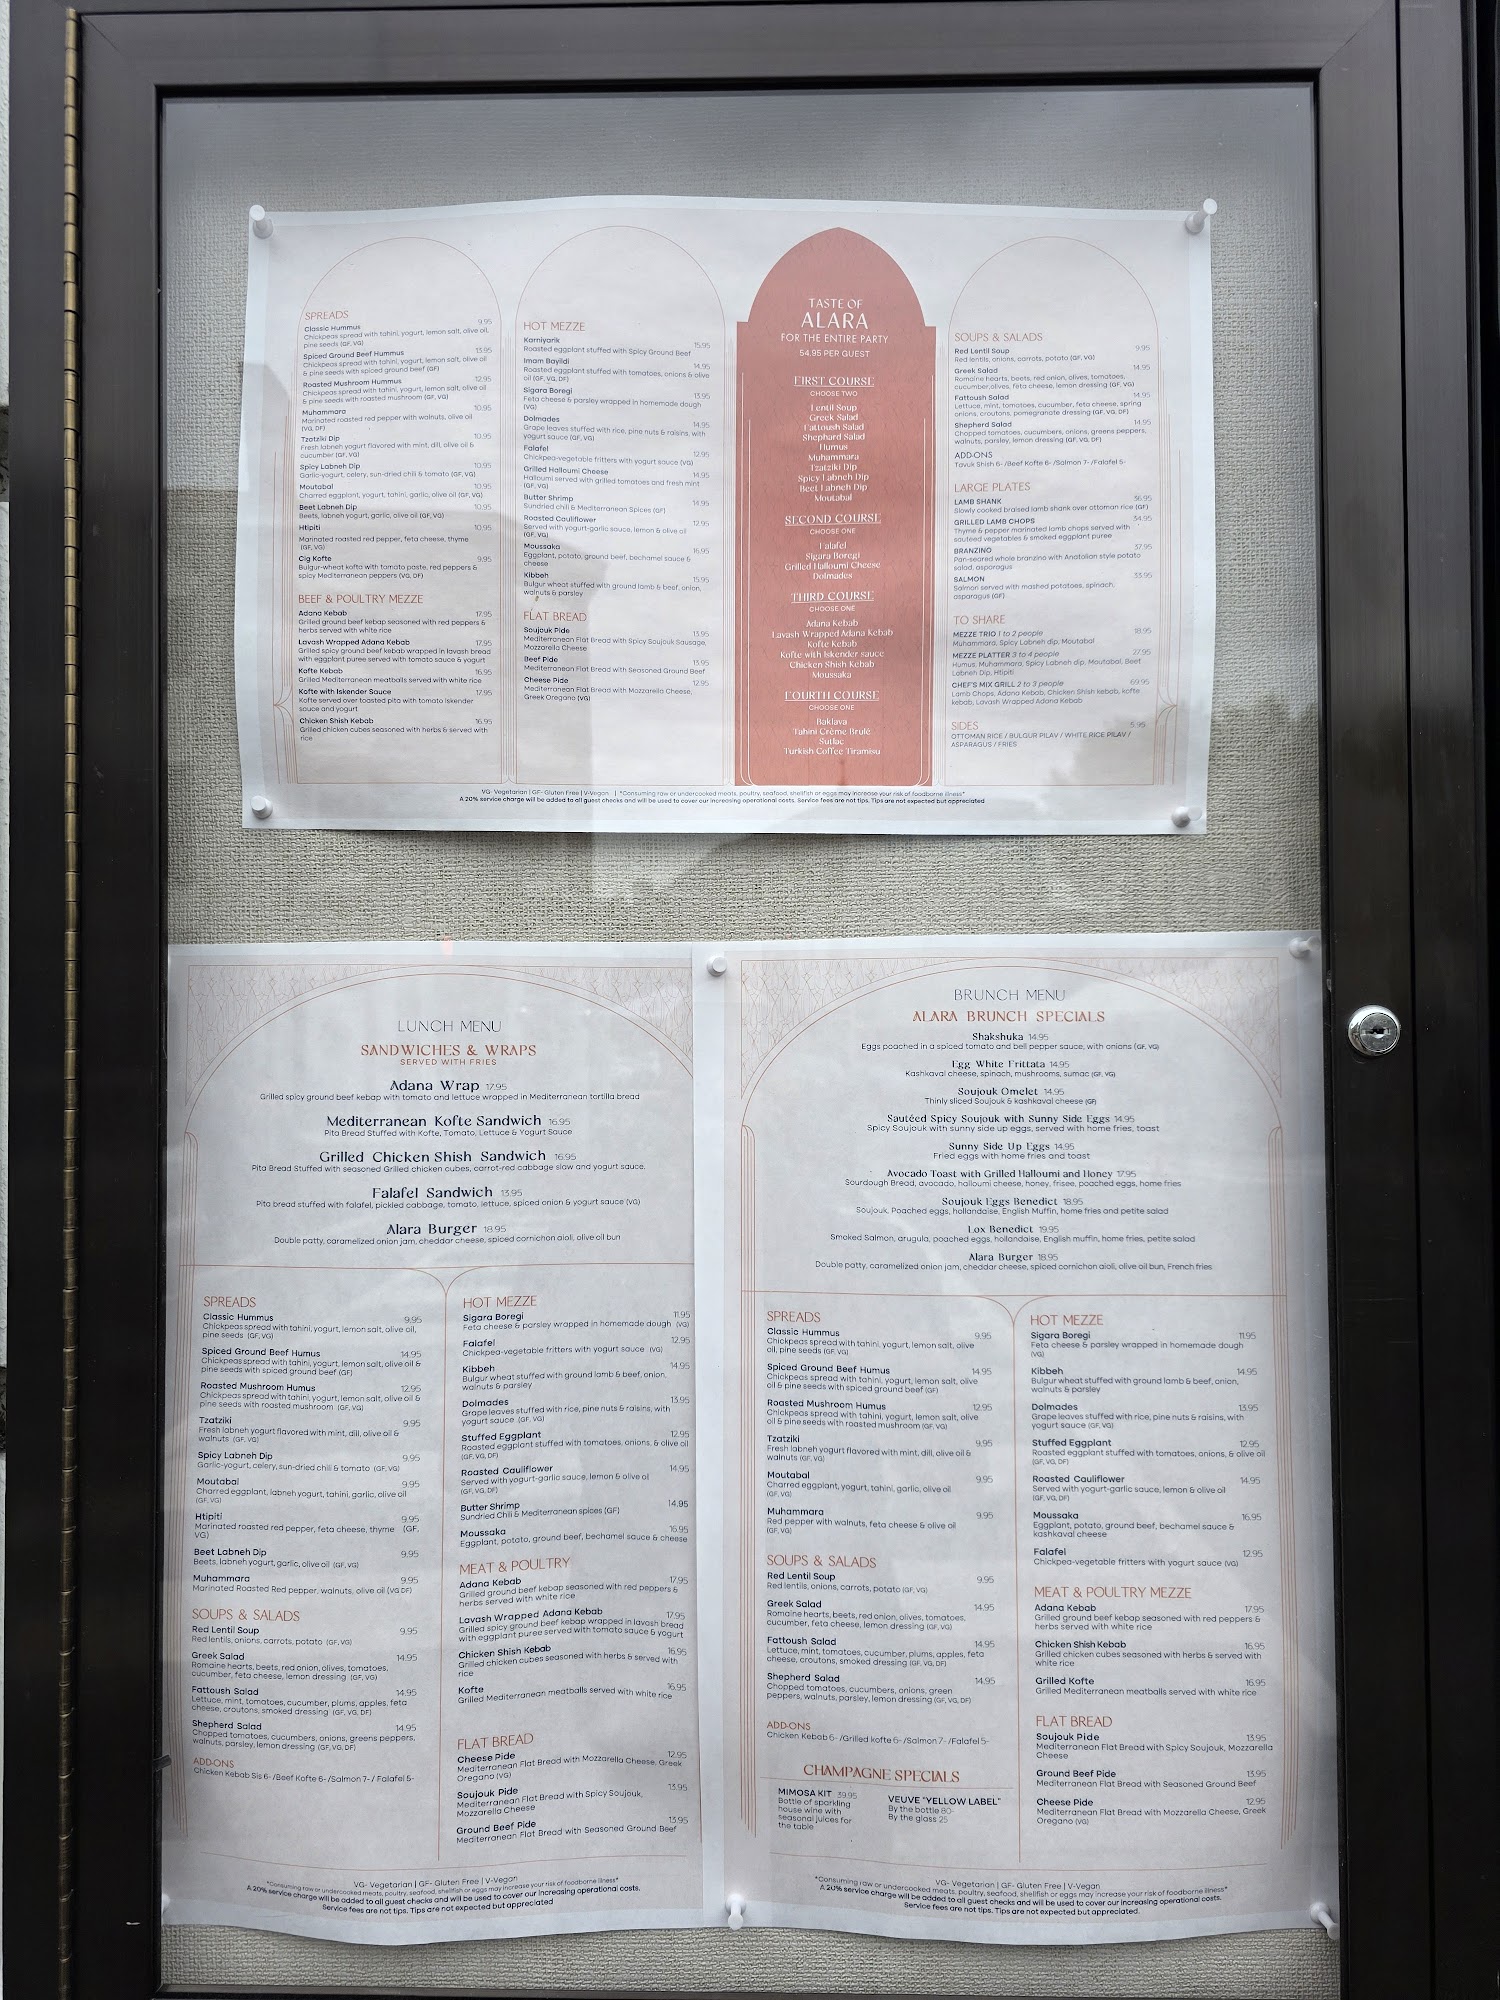 SPREADS
Classic Hummus 9.95
Chickpeas spread with tahini, yogurt, lemon salt, olive oil,
pine seeds (GF, VG)
Spiced Ground Beef Hummus 13.95
Chickpeas spread with tahini, yogurt, lemon salt, olive oil
& pine seeds with spiced ground beef (GF)
Roasted Mushroom Hummus 12.95
Chickpeas spread with tahini, yogurt, lemon salt, olive oil
& pine seeds with roasted mushroom (GF, VG)
Muhammara 10.95
Marinated roasted red pepper with walnuts, olive oil
(VG, DF)
Tzatziki Dip 10.95
Fresh labneh yogurt flavored with mint, dill, olive oil &
cucumber (GF, VG)
Spicy Labneh Dip 10.95
Garlic-yogurt, celery, sun-dried chili & tomato (GF, VG)
Moutabal 10.95
Charred eggplant, yogurt, tahini, garlic, olive oil (GF, VG)
Beet Labneh Dip 10.95
Beets, labneh yogurt, garlic, olive oil (GF, VG)
Htipiti 10.95
Marinated roasted red pepper, feta cheese, thyme
(GF, VG)
Cig Kofte 9.95
Bulgur-wheat kofta with tomato paste, red peppers &
spicy Mediterranean peppers (VG, DF)
BEEF & POULTRY MEZZE
Adana Kebab 17.95
Grilled ground beef kebap seasoned with red peppers &
herbs served with white rice
Lavash Wrapped Adana Kebab 17.95
Grilled spicy ground beef kebab wrapped in lavash bread
with eggplant puree served with tomato sauce & yogurt
Kofte Kebab 16.95
Grilled Mediterranean meatballs served with white rice
Kofte with Iskender Sauce 17.95
Kofte served over toasted pita with tomato Iskender
sauce and yogurt
Chicken Shish Kebab 16.95
Grilled chicken cubes seasoned with herbs & served with
rice
HOT MEZZE
Karniyarik 15.95
Roasted eggplant stuffed with Spicy Ground Beef
Imam Bayildi 14.95
Roasted eggplant stuffed with tomatoes, onions & olive
oil (GF, VG, DF)
Sigara Boregi 13.95
Feta cheese & parsley wrapped in homemade dough
(VG)
Dolmades 14.95
Grape leaves stuffed with rice, pine nuts & raisins, with
yogurt sauce (GF, VG)
Falafel 12.95
Chickpea-vegetable fritters with yogurt sauce (VG)
Grilled Halloumi Cheese 14.95
Halloumi served with grilled tomatoes and fresh mint
(GF, VG)
Butter Shrimp 14.95
Sundried chili & Mediterranean Spices (GF)
Roasted Cauliflower 12.95
Served with yogurt-garlic sauce, lemon & olive oil
(GF, VG)
Moussaka 16.95
Eggplant, potato, ground beef, bechamel sauce &
cheese
Kibbeh 15.95
Bulgur wheat stuffed with ground lamb & beef, onion,
walnuts & parsley
FLAT BREAD
Soujouk Pide 13.95
Mediterranean Flat Bread with Spicy Soujouk Sausage,
Mozzarella Cheese
Beef Pide 13.95
Mediterranean Flat Bread with Seasoned Ground Beef
Cheese Pide 12.95
Mediterranean Flat Bread with Mozzarella Cheese,
Greek Oregano (VG)
TASTE OF
ALARA
FOR THE ENTIRE PARTY
54.95 PER GUEST
FIRST COURSE
CHOOSE TWO
Lentil Soup
Greek Salad
Fattoush Salad
Shephard Salad
Humus
Muhammara
Tzatziki Dip
Spicy Labneh Dip
Beet Labneh Dip
Moutabal
SECOND COURSE
CHOOSE ONE
Falafel
Sigara Boregi
Grilled Halloumi Cheese
Dolmades
THIRD COURSE
CHOOSE ONE
Adana Kebab
Lavash Wrapped Adana Kebab
Kofte Kebab
Kofte with Iskender sauce
Chicken Shish Kebab
Moussaka
FOURTH COURSE
CHOOSE ONE
Baklava
Tahini Crème Brûlé
Sutlac
Turkish Coffee Tiramisu
SOUPS & SALADS
Red Lentil Soup 9.95
Red lentils, onions, carrots, potato (GF, VG)
Greek Salad 14.95
Romaine hearts, beets, red onion, olives, tomatoes,
cucumber,olives, feta cheese, lemon dressing (GF, VG)
Fattoush Salad 14.95
Lettuce, mint, tomatoes, cucumber, feta cheese, spring
onions, croutons, pomegranate dressing (GF, VG, DF)
Shepherd Salad 14.95
Chopped tomatoes, cucumbers, onions, greens peppers,
walnuts, parsley, lemon dressing (GF, VG, DF)
ADD-ONS
Tavuk Shish 6- /Beef Kofte 6- /Salmon 7- /Falafel 5-
LARGE PLATES
LAMB SHANK 36.95
Slowly cooked braised lamb shank over ottoman rice (GF)
GRILLED LAMB CHOPS 34.95
Thyme & pepper marinated lamb chops served with
sauteed vegetables & smoked eggplant puree
BRANZINO 37.95
Pan-seared whole branzino with Anatolian style potato
salad, asparagus
SALMON 33.95
Salmon served with mashed potatoes, spinach,
asparagus (GF)
TO SHARE
MEZZE TRIO 1 to 2 people 18.95
Muhammara, Spicy Labneh dip, Moutabal
MEZZE PLATTER 3 to 4 people 27.95
Humus, Muhammara, Spicy Labneh dip, Moutabal, Beet
Labneh Dip, Htipiti
CHEF'S MIX GRILL 2 to 3 people 69.95
Lamb Chops, Adana Kebab, Chicken Shish kebab, kofte
kebab, Lavash Wrapped Adana Kebab
SIDES 5.95
OTTOMAN RICE / BULGUR PILAV / WHITE RICE PILAV /
ASPARAGUS / FRIES
VG- Vegetarian | GF- Gluten Free | V-Vegan | *Consuming raw or undercooked meats, poultry, seafood, shellfish or eggs may increase your risk of foodborne illness*
A 20% service charge will be added to all guest checks and will be used to cover our increasing operational costs. Service fees are not tips. Tips are not expected but appreciated
LUNCH MENU
SANDWICHES & WRAPS
SERVED WITH FRIES
Adana Wrap 17.95
Grilled spicy ground beef kebap with tomato and lettuce wrapped in Mediterranean tortilla bread
Mediterranean Kofte Sandwich 16.95
Pita Bread Stuffed with Kofte, Tomato, Lettuce & Yogurt Sauce
Grilled Chicken Shish Sandwich 16.95
Pita Bread Stuffed with seasoned Grilled chicken cubes, carrot-red cabbage slaw and yogurt sauce.
Falafel Sandwich 13.95
Pita bread stuffed with falafel, pickled cabbage, tomato, lettuce, spiced onion & yogurt sauce (VG)
Alara Burger 18.95
Double patty, caramelized onion jam, cheddar cheese, spiced cornichon aioli, olive oil bun
SPREADS
Classic Hummus 9.95
Chickpeas spread with tahini, yogurt, lemon salt, olive oil,
pine seeds (GF, VG)
Spiced Ground Beef Humus 14.95
Chickpeas spread with tahini, yogurt, lemon salt, olive oil &
pine seeds with spiced ground beef (GF)
Roasted Mushroom Humus 12.95
Chickpeas spread with tahini, yogurt, lemon salt, olive oil &
pine seeds with roasted mushroom (GF, VG)
Tzatziki 9.95
Fresh labneh yogurt flavored with mint, dill, olive oil &
walnuts (GF, VG)
Spicy Labneh Dip 9.95
Garlic-yogurt, celery, sun-dried chili & tomato (GF, VG)
Moutabal 9.95
Charred eggplant, labneh yogurt, tahini, garlic, olive oil
(GF, VG)
Htipiti 9.95
Marinated roasted red pepper, feta cheese, thyme (GF,
VG)
Beet Labneh Dip 9.95
Beets, labneh yogurt, garlic, olive oil (GF, VG)
Muhammara 9.95
Marinated Roasted Red pepper, walnuts, olive oil (VG DF)
SOUPS & SALADS
Red Lentil Soup 9.95
Red lentils, onions, carrots, potato (GF, VG)
Greek Salad 14.95
Romaine hearts, beets, red onion, olives, tomatoes,
cucumber, feta cheese, lemon dressing (GF, VG)
Fattoush Salad 14.95
Lettuce, mint, tomatoes, cucumber, plums, apples, feta
cheese, croutons, smoked dressing (GF, VG, DF)
Shepherd Salad 14.95
Chopped tomatoes, cucumbers, onions, greens peppers,
walnuts, parsley, lemon dressing (GF, VG, DF)
ADD-ONS
Chicken Kebab Sis 6- /Beef Kofte 6- /Salmon 7- / Falafel 5-
HOT MEZZE
Sigara Boregi 11.95
Feta cheese & parsley wrapped in homemade dough (VG)
Falafel 12.95
Chickpea-vegetable fritters with yogurt sauce (VG)
Kibbeh 14.95
Bulgur wheat stuffed with ground lamb & beef, onion,
walnuts & parsley
Dolmades 13.95
Grape leaves stuffed with rice, pine nuts & raisins, with
yogurt sauce (GF, VG)
Stuffed Eggplant 12.95
Roasted eggplant stuffed with tomatoes, onions, & olive oil
(GF, VG, DF)
Roasted Cauliflower 14.95
Served with yogurt-garlic sauce, lemon & olive oil
(GF, VG, DF)
Butter Shrimp 14.95
Sundried Chili & Mediterranean spices (GF)
Moussaka 16.95
Eggplant, potato, ground beef, bechamel sauce & cheese
MEAT & POULTRY
Adana Kebab 17.95
Grilled ground beef kebap seasoned with red peppers &
herbs served with white rice
Lavash Wrapped Adana Kebab 17.95
Grilled spicy ground beef kebap wrapped in lavash bread
with eggplant puree served with tomato sauce & yogurt
Chicken Shish Kebab 16.95
Grilled chicken cubes seasoned with herbs & served with
rice
Kofte 16.95
Grilled Mediterranean meatballs served with white rice
FLAT BREAD
Cheese Pide 12.95
Mediterranean Flat Bread with Mozzarella Cheese, Greek
Oregano (VG)
Soujouk Pide 13.95
Mediterranean Flat Bread with Spicy Soujouk,
Mozzarella Cheese
Ground Beef Pide 13.95
Mediterranean Flat Bread with Seasoned Ground Beef
VG- Vegetarian | GF- Gluten Free | V-Vegan
*Consuming raw or undercooked meats, poultry, seafood, shellfish or eggs may increase your risk of foodborne illness*
A 20% service charge will be added to all guest checks and will be used to cover our increasing operational costs.
Service fees are not tips. Tips are not expected but appreciated
BRUNCH MENU
ALARA BRUNCH SPECIALS
Shakshuka 14.95
Eggs poached in a spiced tomato and bell pepper sauce, with onions (GF, VG)
Egg White Frittata 14.95
Kashkaval cheese, spinach, mushrooms, sumac (GF, VG)
Soujouk Omelet 14.95
Thinly sliced Soujouk & kashkaval cheese (GF)
Sautéed Spicy Soujouk with Sunny Side Eggs 14.95
Spicy Soujouk with sunny side up eggs, served with home fries, toast
Sunny Side Up Eggs 14.95
Fried eggs with home fries and toast
Avocado Toast with Grilled Halloumi and Honey 17.95
Sourdough Bread, avocado, halloumi cheese, honey, frisee, poached eggs, home fries
Soujouk Eggs Benedict 18.95
Soujouk, Poached eggs, hollandaise, English Muffin, home fries and petite salad
Lox Benedict 19.95
Smoked Salmon, arugula, poached eggs, hollandaise, English muffin, home fries, petite salad
Alara Burger 18.95
Double patty, caramelized onion jam, cheddar cheese, spiced cornichon aioli, olive oil bun, French fries
SPREADS
Classic Hummus 9.95
Chickpeas spread with tahini, yogurt, lemon salt, olive
oil, pine seeds (GF, VG)
Spiced Ground Beef Humus 14.95
Chickpeas spread with tahini, yogurt, lemon salt, olive
oil & pine seeds with spiced ground beef (GF)
Roasted Mushroom Humus 12.95
Chickpeas spread with tahini, yogurt, lemon salt, olive
oil & pine seeds with roasted mushroom (GF, VG)
Tzatziki 9.95
Fresh labneh yogurt flavored with mint, dill, olive oil &
walnuts (GF, VG)
Moutabal 9.95
Charred eggplant, yogurt, tahini, garlic, olive oil
(GF, VG)
Muhammara 9.95
Red pepper with walnuts, feta cheese & olive oil
(GF, VG)
SOUPS & SALADS
Red Lentil Soup 9.95
Red lentils, onions, carrots, potato (GF, VG)
Greek Salad 14.95
Romaine hearts, beets, red onion, olives, tomatoes,
cucumber, feta cheese, lemon dressing (GF, VG)
Fattoush Salad 14.95
Lettuce, mint, tomatoes, cucumber, plums, apples, feta
cheese, croutons, smoked dressing (GF, VG, DF)
Shepherd Salad 14.95
Chopped tomatoes, cucumbers, onions, green
peppers, walnuts, parsley, lemon dressing (GF, VG, DF)
ADD-ONS
Chicken Kebab 6- /Grilled kofte 6- /Salmon 7- /Falafel 5-
CHAMPAGNE SPECIALS
MIMOSA KIT 39.95
Bottle of sparkling
house wine with
seasonal juices for
the table
VEUVE "YELLOW LABEL"
By the bottle 80-
By the glass 25
HOT MEZZE
Sigara Boregi 11.95
Feta cheese & parsley wrapped in homemade dough
(VG)
Kibbeh 14.95
Bulgur wheat stuffed with ground lamb & beef, onion,
walnuts & parsley
Dolmades 13.95
Grape leaves stuffed with rice, pine nuts & raisins, with
yogurt sauce (GF, VG)
Stuffed Eggplant 12.95
Roasted eggplant stuffed with tomatoes, onions, & olive oil
(GF, VG, DF)
Roasted Cauliflower 14.95
Served with yogurt-garlic sauce, lemon & olive oil
(GF, VG, DF)
Moussaka 16.95
Eggplant, potato, ground beef, bechamel sauce &
kashkaval cheese
Falafel 12.95
Chickpea-vegetable fritters with yogurt sauce (VG)
MEAT & POULTRY MEZZE
Adana Kebab 17.95
Grilled ground beef kebap seasoned with red peppers &
herbs served with white rice
Chicken Shish Kebab 16.95
Grilled chicken cubes seasoned with herbs & served with
white rice
Grilled Kofte 16.95
Grilled Mediterranean meatballs served with white rice
FLAT BREAD
Soujouk Pide 13.95
Mediterranean Flat Bread with Spicy Soujouk, Mozzarella
Cheese
Ground Beef Pide 13.95
Mediterranean Flat Bread with Seasoned Ground Beef
Cheese Pide 12.95
Mediterranean Flat Bread with Mozzarella Cheese, Greek
Oregano (VG)
VG- Vegetarian | GF- Gluten Free | V-Vegan
*Consuming raw or undercooked meats, poultry, seafood, shellfish or eggs may increase your risk of foodborne illness*
A 20% service charge will be added to all guest checks and will be used to cover our increasing operational costs.
Service fees are not tips. Tips are not expected but appreciated.